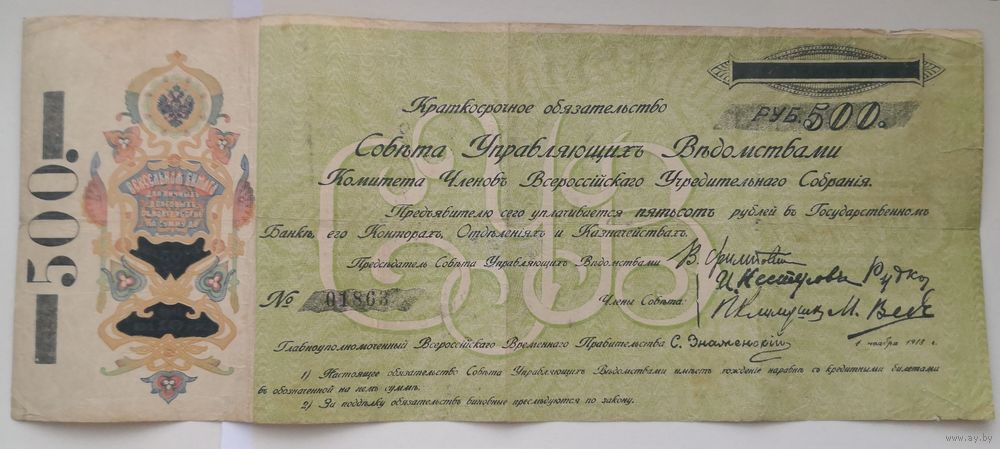 500.
ВЕКСЕЛЬНАЯ БУМАГА
ДЛЯ ЛИЧНЫХ
ДОЛГОВЫХ
ОБЯЗАТЕЛЬСТВЪ
НА СУММУ ДО
РУБ. 500.
Краткосрочное обязательство
Совѣта Управляющихъ Вѣдомствами
Комитета Членовъ Всероссійскаго Учредительнаго Собранія.
Предъявителю сего уплачивается пятьсотъ рублей въ Государственномъ
Банкѣ, его Конторахъ, Отдѣленіяхъ и Казначействахъ.
Предсѣдатель Совѣта Управляющихъ Вѣдомствами В. Филипповскій
И. Нестеровъ Рудко
№ 01863 Члены Совѣта: П. Климушк М. Вед
Главноуполномоченный Всероссійскаго Временнаго Правительства С. Знаменскій
1 ноября 1918 г.
1) Настоящее обязательство Совѣта Управляющихъ Вѣдомствами имѣетъ хожденіе наравнѣ съ кредитными билетами
въ обозначенной на немъ суммѣ.
2) За поддѣлку обязательствъ виновные преслѣдуются по закону.
www.ay.by